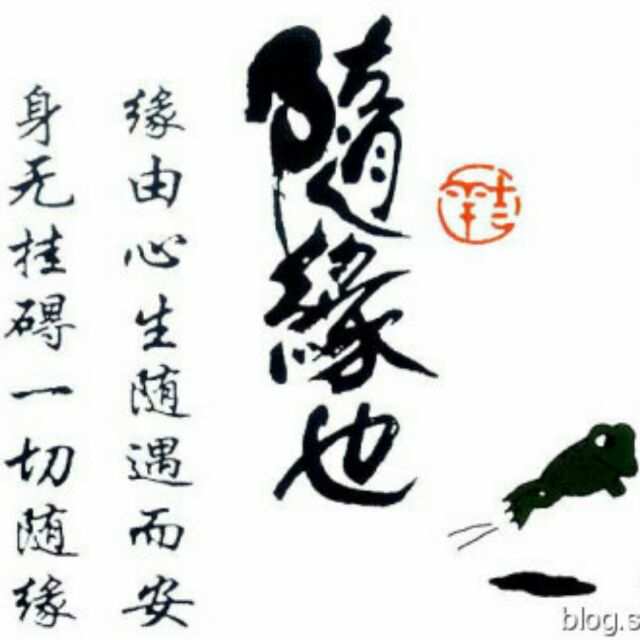 隨緣也
缘由心生随遇而安
身无挂碍一切随缘
blog.s